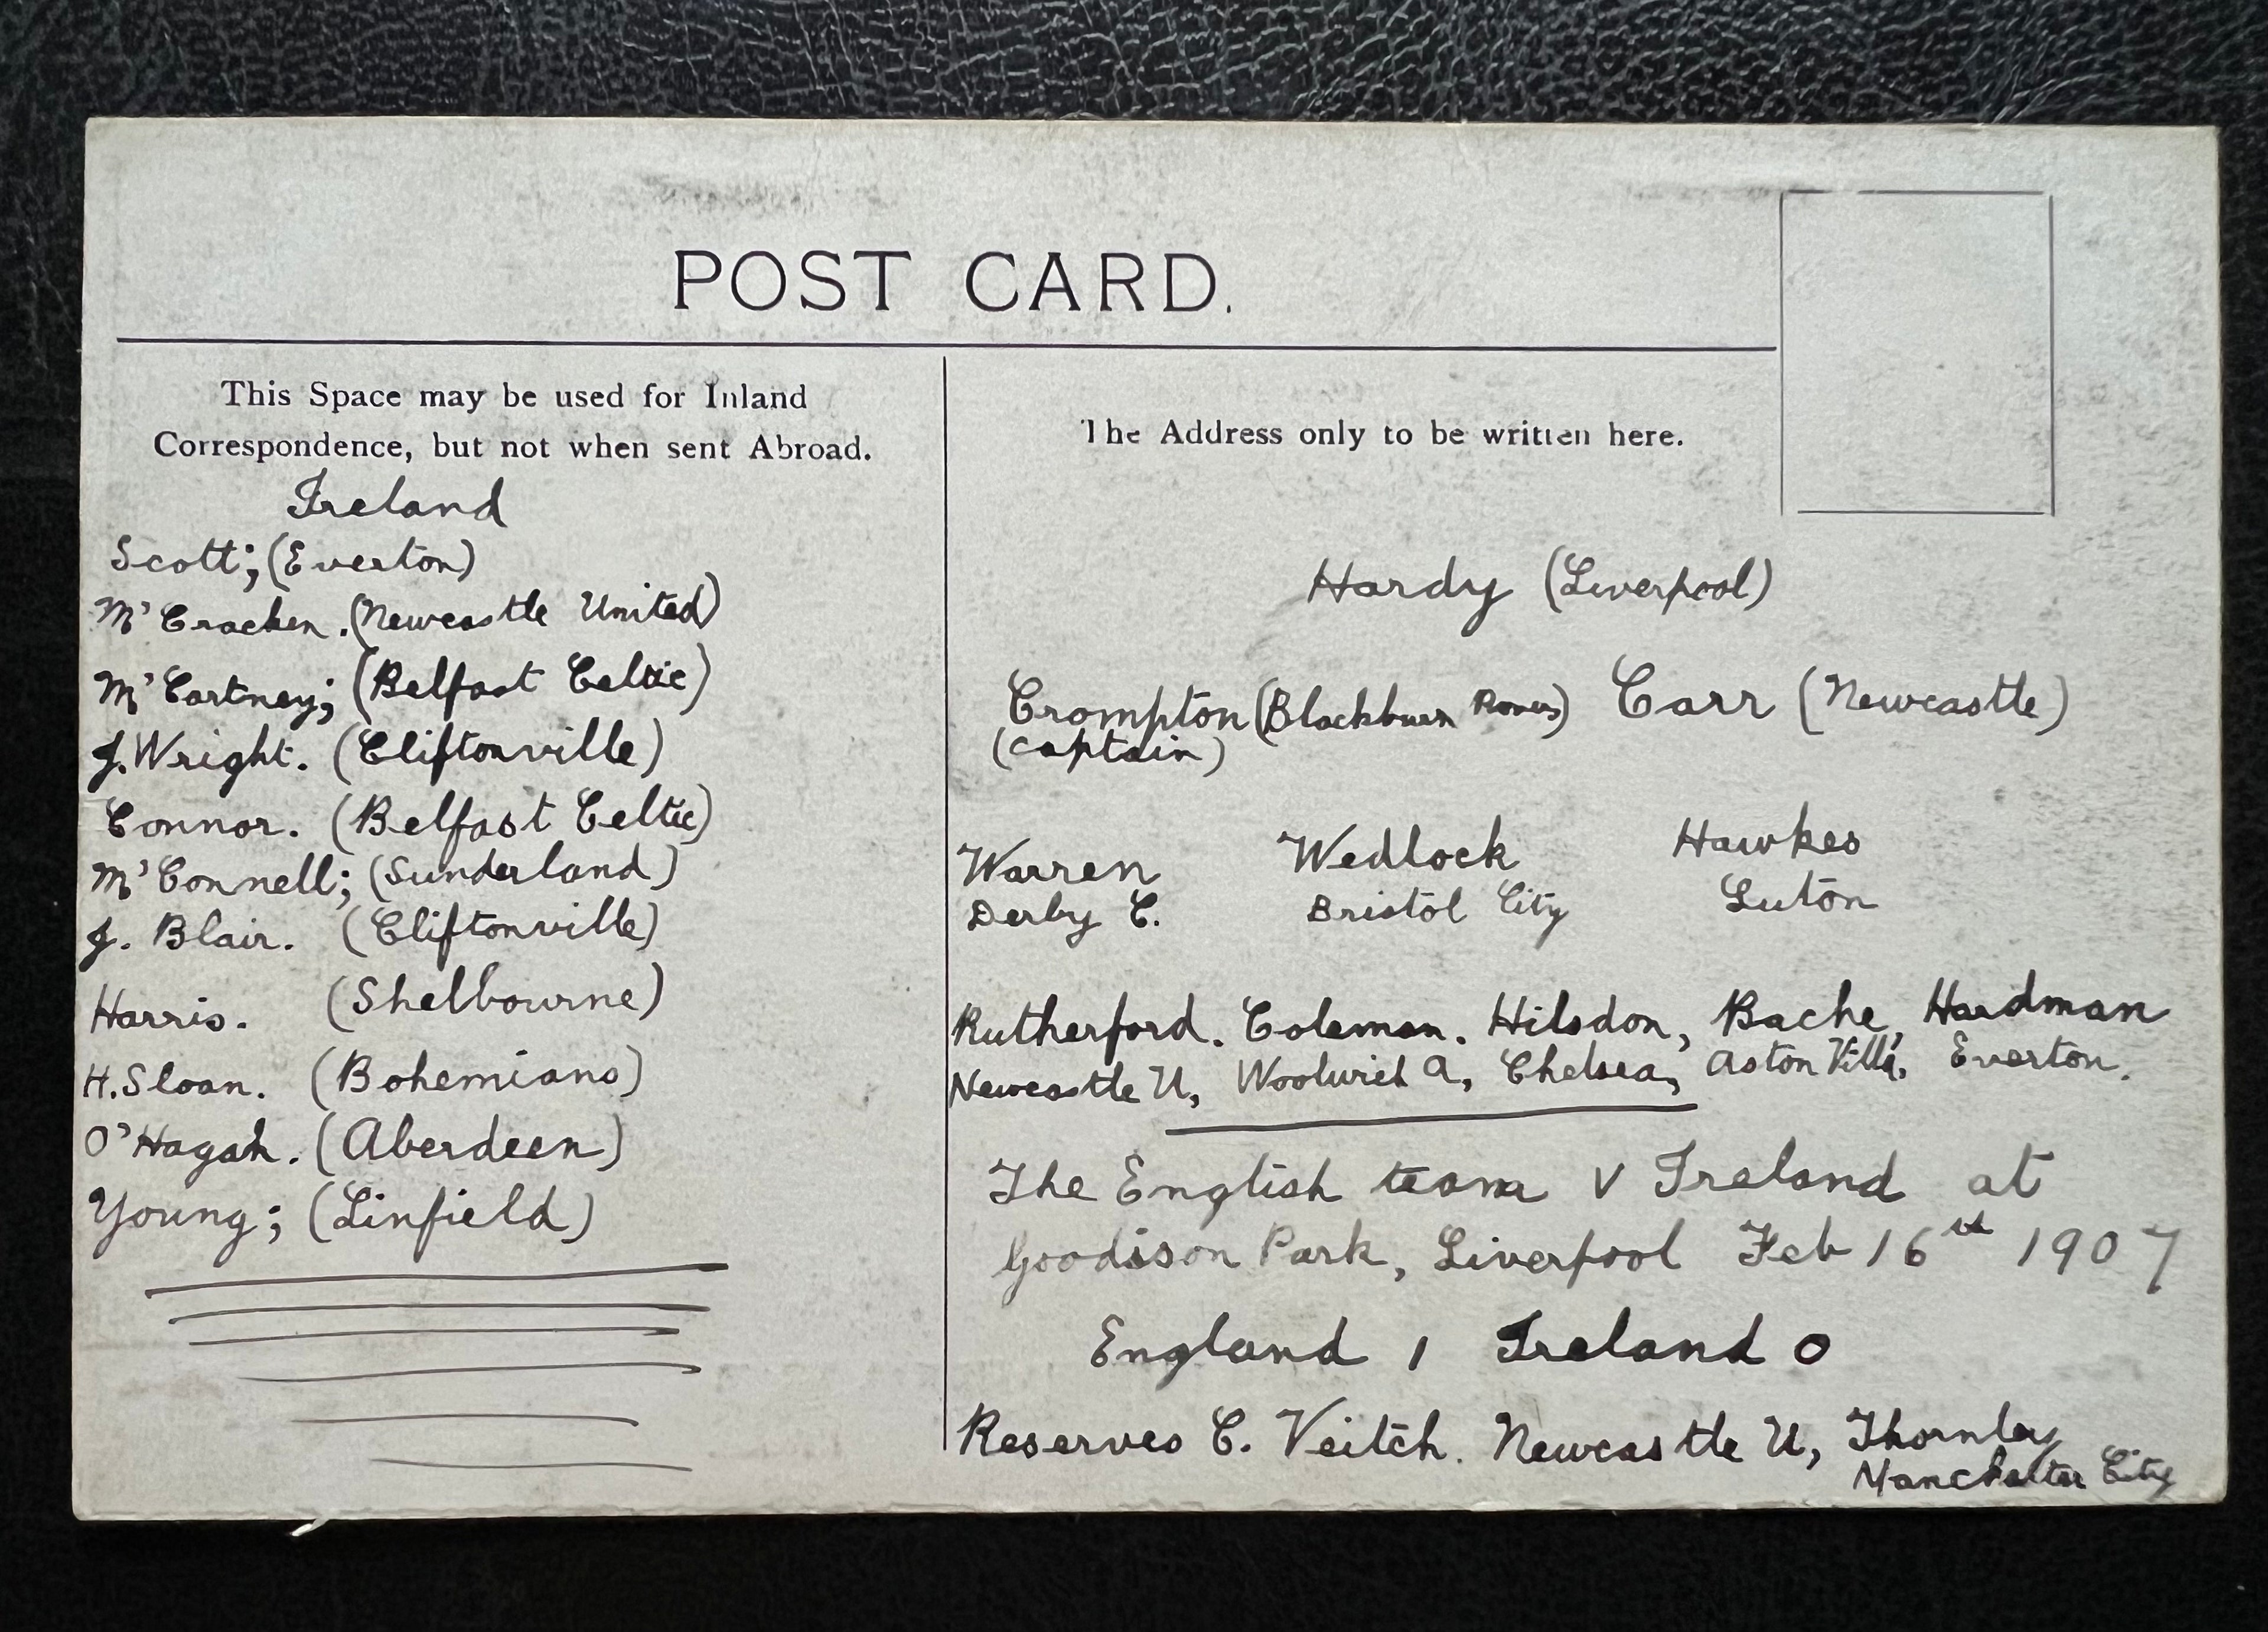 POST CARD.
This Space may be used for Inland
Correspondence, but not when sent Abroad.
Ireland
Scott; (Everton)
M'Cracken. (Newcastle United)
M'Cartney; (Belfast Celtic)
J. Wright. (Cliftonville)
Connor. (Belfast Celtic)
M'Connell; (Sunderland)
J. Blair. (Cliftonville)
Harris. (Shelbourne)
H. Sloan. (Bohemians)
O'Hagan. (Aberdeen)
Young; (Linfield)
The Address only to be written here.
Hardy (Liverpool)
Crompton (Blackburn Rovers) Carr (Newcastle)
(captain)
Warren Wedlock Hawkes
Derby C. Bristol City Luton
Rutherford. Coleman. Hilsdon, Bache, Hardman
Newcastle U, Woolwich A, Chelsea, Aston Villa, Everton.
The English team V Ireland at
Goodison Park, Liverpool Feb 16th 1907
England 1 Ireland 0
Reserves C. Veitch. Newcastle U, Thornley
Manchester City